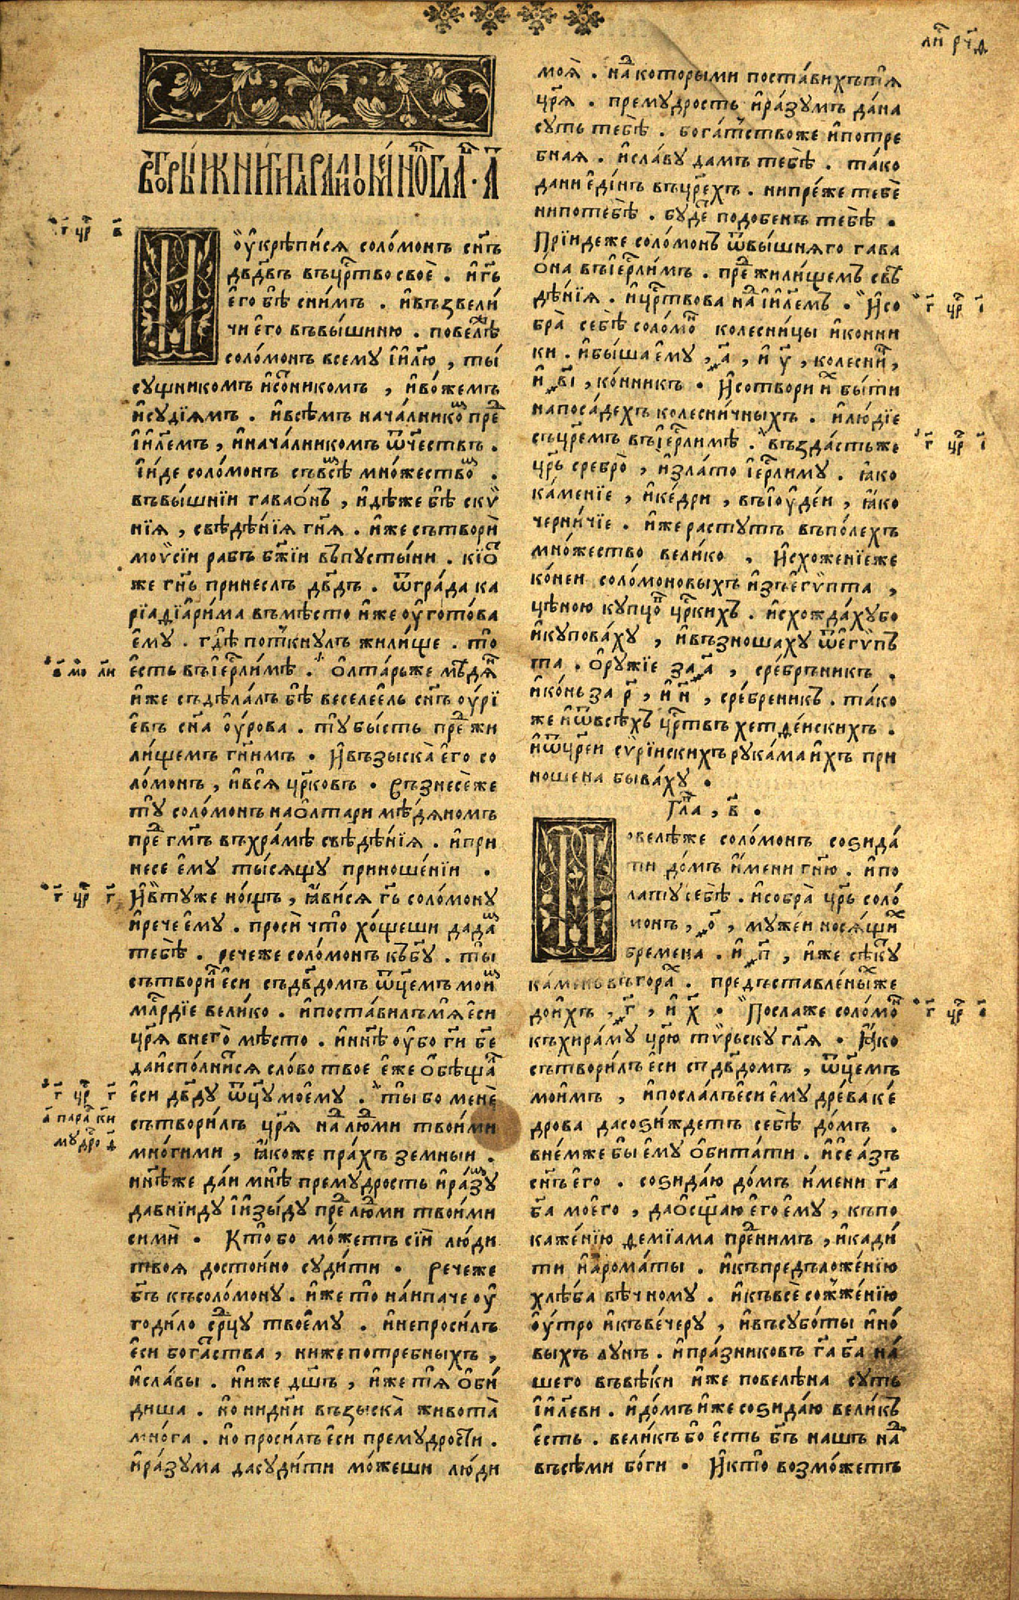 ли҃ рч҃д
Вторыѧ книги паралипоменонъ гла҃в. а҃
г҃ цр҃ в҃
И оукрѣписѧ соломонъ сн҃ъ
дв҃двъ въ црⷭ҇тво свое . и гь҃
его бѣ сним̾ . и възвели
чи его въвышиню . повелѣ
соломонъ всему і҃илю , ты
сущникомъ и сотникомъ , и вожемъ
и судіѧмъ . и всѣмъ началникоⷨ пре
і҃илемъ , и началникомъ ѿчествъ .
Іиде соломонъ съ всѣⷨ множествоⷨ .
въвышніи гаваонъ , идѣже бѣ ски
ніѧ , свѣдѣніѧ гн҃ѧ . иже сътвори
моѵсіи рабъ бж҃іи въпустыни . кіѡⷮ
же гн҃ь принеслъ дв҃дъ . ѿ града ка
ріадіарима въмѣсто иже оуготова
ему . гдѣ поткнулъ жилище . то
в҃ мо л҃и
есть въ іерⷭ҇лимѣ . Олтарьже мѣдѧⷩ
иже съдѣлалъ бѣ веселеель сн҃ъ оурі
евъ сн҃а оурова . ту бысть преⷣ жи
лищемъ гн҃имъ . И възыска его со
ломонъ , и всѧ црⷬ҇ковъ . Възнесеже
ту соломонъ на олтари мѣдѧномъ
преⷣ гм҃ъ въ храмѣ свѣдѣніѧ . и при
несе ему тысѧщу приношеніи .
г҃ цр҃ г҃
И втуже нощъ , ꙗвисѧ гь҃ соломону
и рече ему . проси что хощеши да даⷨ
тебѣ . речеже соломонъ къ б҃у . ты
сътворилъ еси съ дв҃домъ ѿцемъ моиⷨ
млⷭ҇рдіе велико . и поставилъмѧ еси
цр҃ѧ внего мѣсто . и нн҃ѣ оубо ги҃ бе҃
да исполнисѧ слово твое еже обѣщаⷧ
г҃ цр҃ г҃
еси дв҃ду ѿцу моему . ты бо мене
а҃ пара к҃и
сътворилъ цр҃ѧ наⷣ люⷣми твоими
мудро д҃
многими , ꙗкоже прахъ земныи .
и нн҃ѣже даи мнѣ премудрость и разуⷨ
да вніиду і изыду преⷣ люⷣми твоими
сими . Кто бо можетъ сіи люди
твоѧ достоино судити . Речеже
бг҃ъ къ соломону . иже то наипаче оу
годило срⷣцу твоему . и непросилъ
еси богаⷮства , ниже потребныхъ ,
и славы . ниже дш҃ъ , иже тѧ оби
диша . но ни дн҃и възыска живота
многа . но просилъ еси премудрости .
и разума да судити можеши люди
моѧ . наⷣ которыми поставихътѧ
цр҃ѧ . премудрость и разумъ дана
суть тебѣ . богатствоже и потре
бнаѧ . и славу дамъ тебѣ . тако
да ни единъ въ цр҃ехъ . ни преже тебе
ни по тебѣ . будеⷮ подобенъ тебѣ .
Пріидеже соломонъ ѿ вышнѧго гава
она въ іерⷭ҇лимъ . преⷣ жилищемъ свѣ
дѣніѧ . и црⷭ҇твова наⷣ і҃илемъ . И со
г҃ цр҃ і҃
бра себѣ соломоⷩ колесницы и конни
ки . и быша ему , ҂а҃ , и у҃ , колесниⷰ ,
и ҂в҃і , конникъ . И сотвори иⷯ быти
на посадехъ колесничныхъ . и людіе
съ цр҃емъ въ іерⷭ҇лимѣ . въздастьже
г҃ цр҃ і҃
цр҃ь сребро , и злато іерⷭ҇лиму . ꙗко
каменіе , и кедри , въ іоудеи , ꙗко
черничіе . иже растутъ въ полехъ
множество велико , Исхоженіеже
конеи соломоновыхъ изъ егѵпта ,
цѣною купцоⷡ црⷭ҇кихъ . исхождахубо
и куповаху , и възношаху ѿ егѵпъ
та . Оружіе за ҂а҃ , сребръникъ .
и конь за р҃ , и н҃ , сребреникъ . тако
же и ѿ всѣхъ црⷭ҇твъ хетдеискихъ .
и ѿ цр҃еи сѵріискихъ рукама ихъ при
ношена бываху .
Гла҃ , в҃ .
Повелѣже соломонъ соѕида
ти домъ имени гн҃ю . и по
лату себѣ . и собра цр҃ь соло
монъ , ҂о҃ , мужеи носѧщиⷯ
бремена . и ҂п҃ , иже сѣку
каменъ въ гораⷯ . предъставленыⷯже
до ихъ , ҂г҃ , и х҃ . Послаже соломоⷩ
г҃ цр҃ е҃
къ хираму цр҃ю тѵрьску гл҃ѧ . Ꙗко
сътворилъ еси съ дв҃домъ , ѿцемъ
моимъ , и послалъ еси ему древа ке
дрова да соѕиждетъ себѣ домъ .
внемже бы ему обитати . и се азъ
сн҃ъ его . соѕидаю домъ имени га҃
ба҃ моего , да осщ҃аю его ему , къ по
каженію деміама преⷣ нимъ , и кади
ти и ароматы . и къ предъложенію
хлѣба вѣчному . и къ все сожженію
оутро и къ вечеру , и въ суботы и но
выхъ лунъ . и празниковъ га҃ ба҃ на
шего въ вѣки иже повелѣна суть
і҃илеви . и домъ иже соѕидаю великъ
есть . великъ бо есть бг҃ъ нашъ наⷣ
въсѣми боги . И кто возможетъ